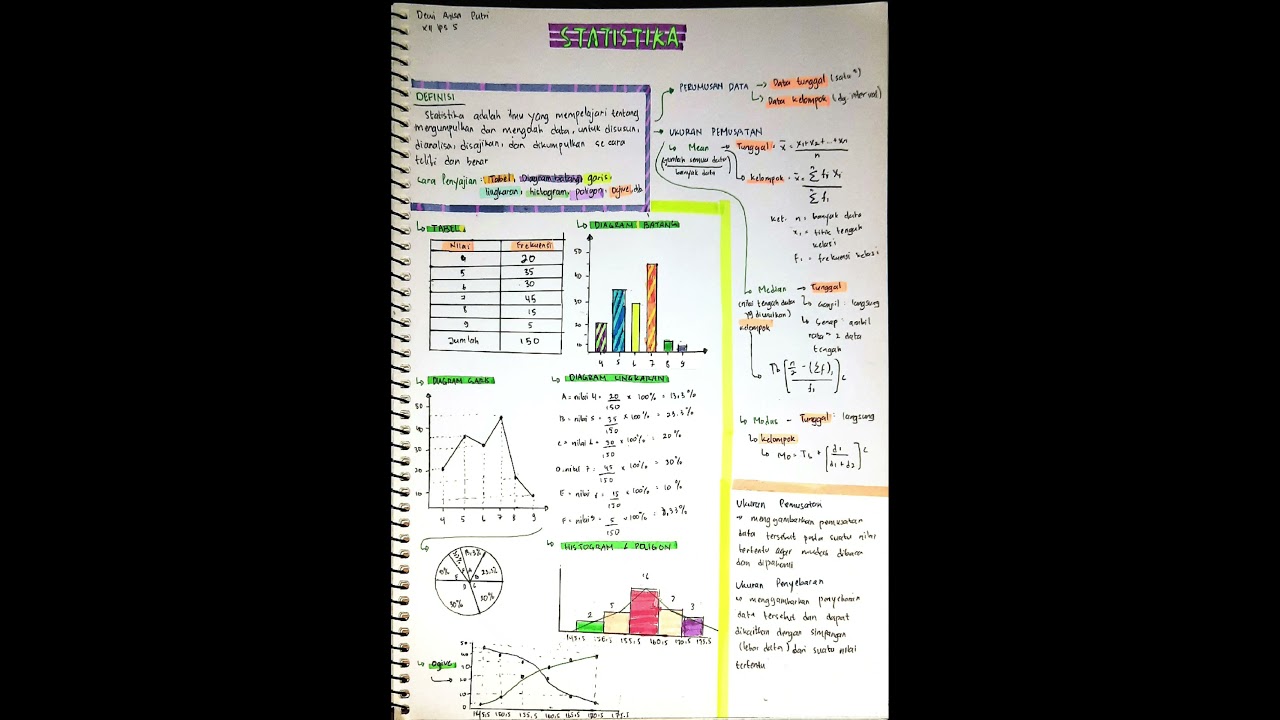 Dewi Anisa Putri
XII IPS 5
STATISTIKA
DEFINISI
Statistika adalah ilmu yang mempelajari tentang
mengumpulkan dan mengolah data, untuk disusun,
dianalisa, disajikan, dan dikumpulkan secara
teliti dan benar
Cara Penyajian: Tabel, Diagram batang, garis,
lingkaran, histogram, poligon, Ogive, dll.
PERUMUSAN DATA → Data tunggal (satu²)
↳ Data Kelompok (dg. interval)
→ UKURAN PEMUSATAN
↳ Mean → Tunggal = x̄ = x₁+x₂+...+xₙ / n
(jumlah semua data / banyak data)
Kelompok = x̄ = Σ fᵢ xᵢ / Σ fᵢ
ket. n = banyak data
xᵢ = titik tengah
kelasi
fᵢ = frekuensi kelasi
↳ TABEL
Nilai Frekuensi
4 20
5 35
6 30
7 45
8 15
9 5
Jumlah 150
↳ DIAGRAM BATANG
50
40
30
20
10
4 5 6 7 8 9
↳ Median → Tunggal
(nilai tengah data
yg diurutkan)
↳ Ganjil : langsung
↳ Genap : ambil
rata² 2 data
tengah
Kelompok
Tb [n/2 - (Σf)ᵢ / fᵢ] c
↳ Modus - Tunggal : langsung
↳ Kelompok
↳ Mo = Tb + [d₁ / d₁+d₂] c
↳ DIAGRAM GARIS
50
40
30
20
10
4 5 6 7 8 9
↳ DIAGRAM LINGKARAN
A = nilai 4 = 20/150 × 100% = 13.3%
B = nilai 5 = 35/150 × 100% = 23.3%
C = nilai 6 = 30/150 × 100% = 20%
D = nilai 7 = 45/150 × 100% = 30%
E = nilai 8 = 15/150 × 100% = 10%
F = nilai 9 = 5/150 × 100% = 3,33%
A B C D E F
23.3%
20%
30%
10%
↳ HISTOGRAM & POLIGON
2 5 16 7 3
145.5 155.5 160.5 170.5
↳ Ogive
50
40
20
10
0
145.5 150.5 155.5 160.5 165.5 170.5 175.5
Ukuran Pemusatan
↳ menggambarkan pemusatan
data tersebut pada suatu nilai
tertentu agar mudah dibaca
dan dipahami
Ukuran Penyebaran
↳ menggambarkan penyebaran
data tersebut dan dapat
dikaitkan dengan simpangan
(lebar data) dari suatu nilai
tertentu